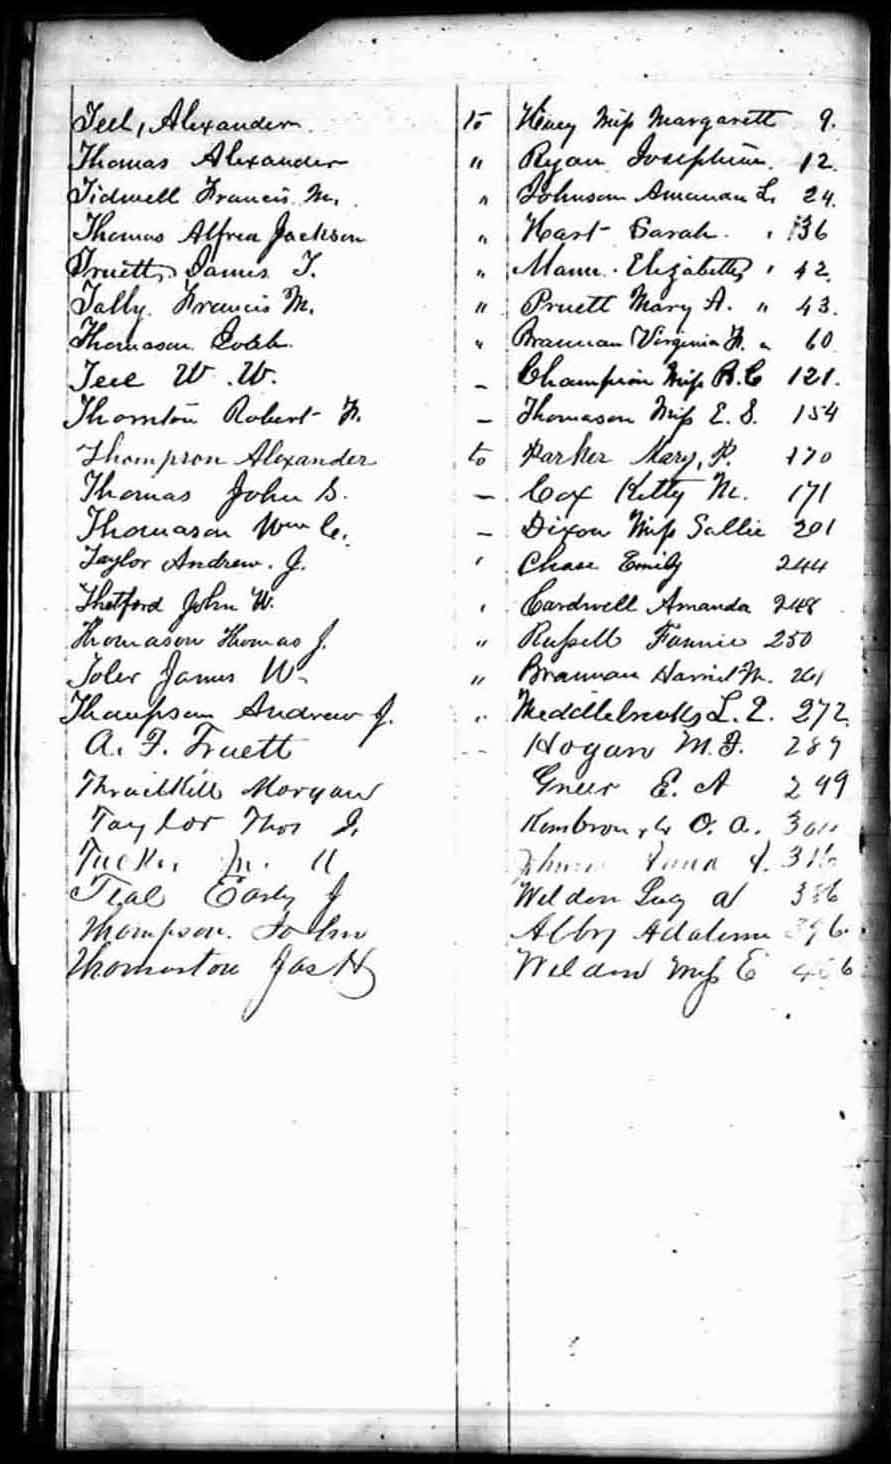 Teel, Alexander to Miss Margarett 9.
Thomas Alexander " Ryan Josephine. 12.
Tidwell Francis M. " Johnson Amanda L. 24
Thomas Alfred Jackson " Hart Sarah. " 36
Truett James T. " Mann Elizabeth " 42.
Tally Francis M. " Pruett Mary A. " 43.
Thomason " Brannan Virginia F. " 60
Teel W. W. – Champion Miss B. C 121.
Thornton Robert F. – Thomason Miss E. S. 154
Thompson Alexander to Parker Mary, P. 170
Thomas John S. – Cox Kitty M. 171
Thomason Wm C. – Dixon Miss Sallie 201
Taylor Andrew. J. " Chase Emily 244
Thetford John W. " Cardwell Amanda 248
Thomason Thomas J. " Russell Fannie 250
Toler James W. " Brannan Harriet M. 261
Thompson Andrew J. " Middlebrooks L. E. 272.
A. F. Truett -- Hogan M. F. 287
Thrailkill Morgan Greer E. A 299
Taylor Thos J. O. A.
M.
Teal Early J Weldon 336
Thompson. John 396
Thomaston Jas H Weldon Miss E